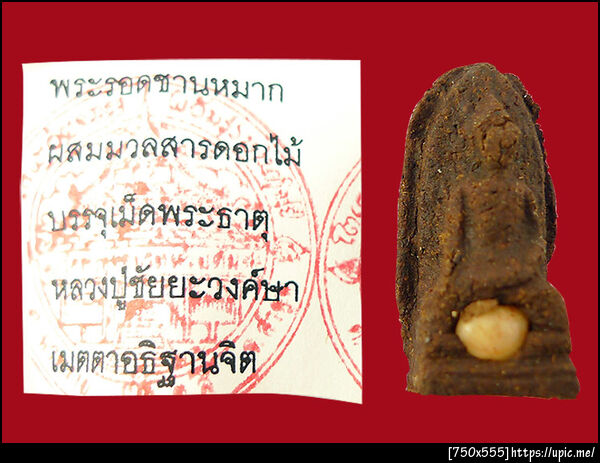 พระรอดชานหมาก
ผสมมวลสารดอกไม้
บรรจุเม็ดพระธาตุ
หลวงปู่ชัยยะวงค์ษา
เมตตาอธิฐานจิต
[750x555] https://upic.me/